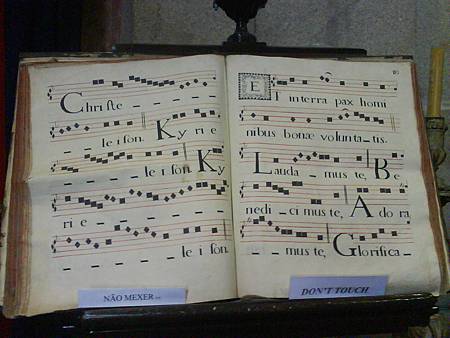 Chriſte
leiſon. Kyrie
leiſon. Ky
rie
leiſon.
ET in terra pax homi
nibus bonæ voluntatis.
Laudamus te, Be
nedicimus te, Adora
mus te, Glorifica
NÃO MEXER
DON'T TOUCH